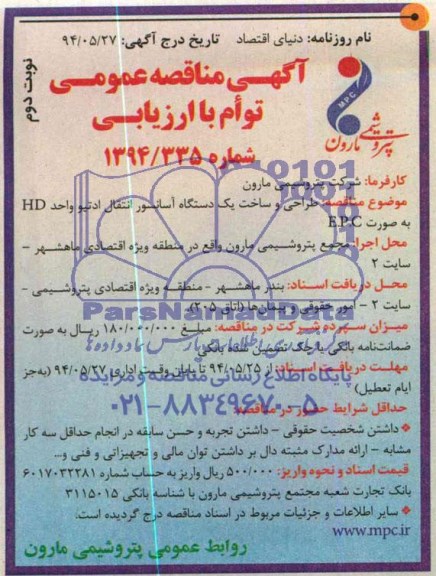 نام روزنامه: دنیای اقتصاد تاریخ درج آگهی: ۹۴/۰۵/۲۷
نوبت دوم
آگهی مناقصه عمومی
توأم با ارزیابی
شماره ۱۳۹۴/۳۳۵
MPC
پتروشیمی مارون
کارفرما: شرکت پتروشیمی مارون
موضوع مناقصه: طراحی و ساخت یک دستگاه آسانسور انتقال ادتیو واحد HD
به صورت E.P.C
محل اجرا: مجمع پتروشیمی مارون واقع در منطقه ویژه اقتصادی ماهشهر -
سایت ۲
محل دریافت اسناد: بندر ماهشهر - منطقه ویژه اقتصادی پتروشیمی -
سایت ۲ - امور حقوقی و پیمان‌ها (اتاق ۲۰۵)
ParsNamadData
میزان سپرده شرکت در مناقصه: مبلغ ۱۸۰/۰۰۰/۰۰۰ ریال به صورت
ضمانت‌نامه بانکی یا چک تضمین شده بانکی
مهلت دریافت اسناد: از ۹۴/۰۵/۲۵ تا پایان وقت اداری ۹۴/۰۵/۲۷ (به‌جز
ایام تعطیل)
پایگاه اطلاع رسانی مناقصه و مزایده
۰۲۱-۸۸۳۴۹۶۷۰-۵
حداقل شرایط حضور در مناقصه:
داشتن شخصیت حقوقی - داشتن تجربه و حسن سابقه در انجام حداقل سه کار
مشابه - ارائه مدارک مثبته دال بر داشتن توان مالی و تجهیزاتی و فنی و...
قیمت اسناد و نحوه واریز: ۵۰۰/۰۰۰ ریال واریز به حساب شماره ۶۰۱۷۰۳۲۲۸۱
بانک تجارت شعبه مجتمع پتروشیمی مارون با شناسه بانکی ۳۱۱۵۰۱۵
سایر اطلاعات و جزئیات مربوط در اسناد مناقصه درج گردیده است.
www.mpc.ir
روابط عمومی پتروشیمی مارون